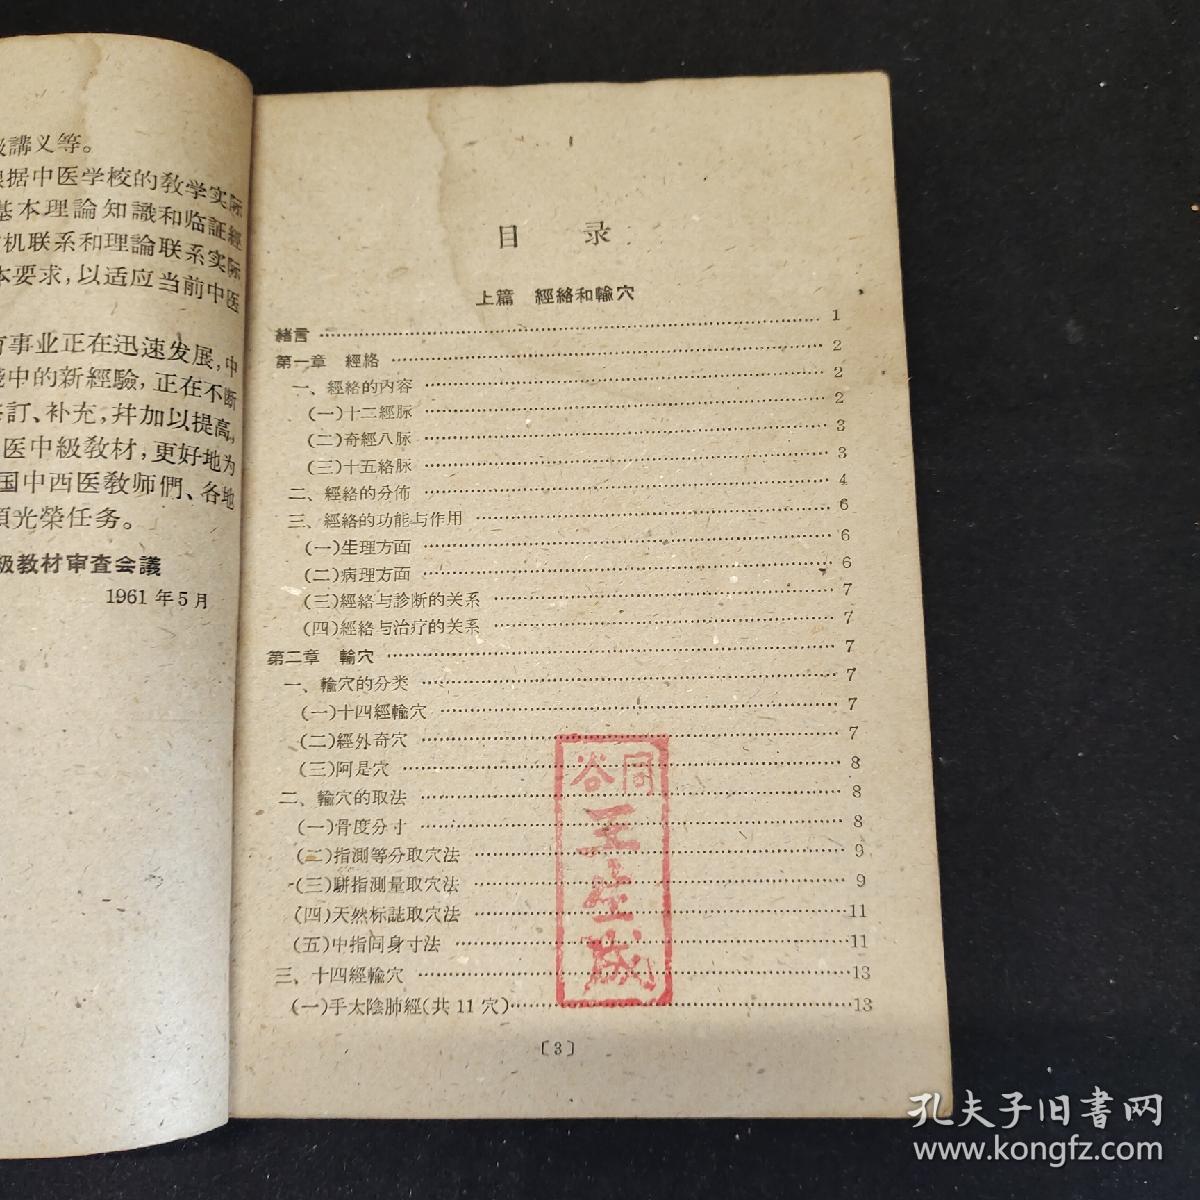 級講义等。
根据中医学校的教学实际
基本理論知識和临証經
机联系和理論联系实际
本要求，以适应当前中医
育事业正在迅速发展，中
践中的新經驗，正在不断
修訂、补充，幷加以提高，
医中級教材，更好地为
国中西医教师們、各地
項光榮任务。
級教材审查会議
1961年5月
目 录
上篇 經絡和輸穴
緒言……1
第一章 經絡……2
一、經絡的内容……2
(一)十二經脉……2
(二)奇經八脉……3
(三)十五絡脉……3
二、經絡的分佈……4
三、經絡的功能与作用……6
(一)生理方面……6
(二)病理方面……6
(三)經絡与診断的关系……7
(四)經絡与治疗的关系……7
第二章 輸穴……7
一、輸穴的分类……7
(一)十四經輸穴……7
(二)經外奇穴……7
(三)阿是穴……8
二、輸穴的取法……8
(一)骨度分寸……8
(二)指測等分取穴法……9
(三)騈指測量取穴法……9
(四)天然标誌取穴法……11
(五)中指同身寸法……11
三、十四經輸穴……13
(一)手太陰肺經(共11穴)……13
〔3〕
孔夫子旧書网
www.kongfz.com